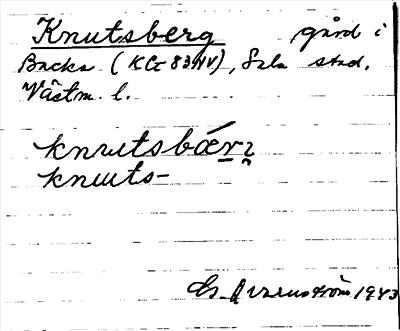 Knutsberg gård i
Backa (KG 83NV), Sala stad,
Västm. l.
knutsbær
knuts-
1943